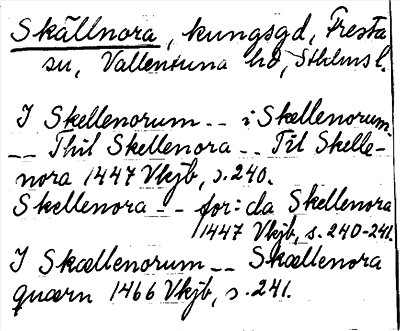 Skällnora, kungsgd, Fresta
sn, Vallentuna hd, Sthlms l.
I Skellenorum -- i Skællenorum
-- Thil Skellenora -- Til Skelle-
nora 1447 Vkjb, s. 240.
Skellenora -- for:da Skellenora
1447 Vkjb, s. 240-241.
I Skællenorum -- Skællenora
quærn 1466 Vkjb, s. 241.